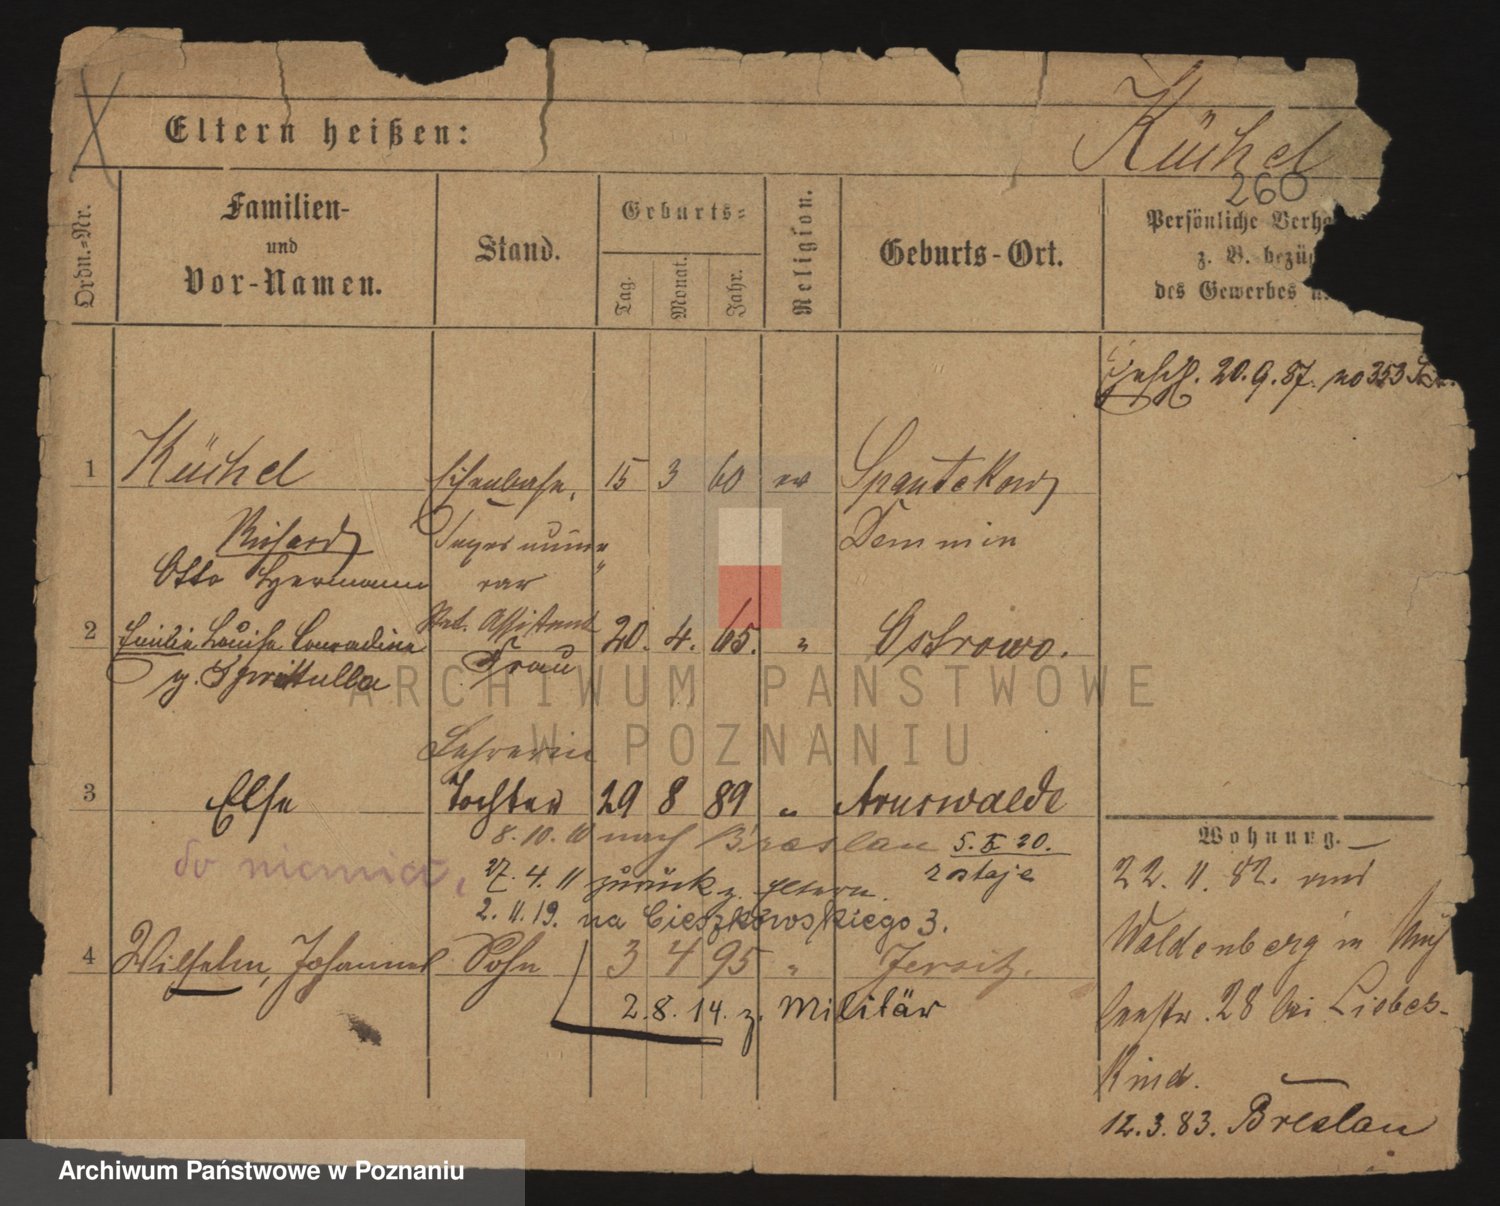 Küchel
260
Eltern heißen:
Ordn.=Nr.
Familien-
und
Vor-Namen.
Stand.
Geburts=
Tag.
Monat.
Jahr.
Religion.
Geburts-Ort.
Persönliche Verh
z. B. bezüg
des Gewerbes u.
20.9.87. no 353
1 Küchel Eisenbahn, 15 3 60 ev Spantekow
Richard Supernume Demmin
Otto Hermann rar
2 Emilie Louise Conradine Assistent 20. 4. 65. " Ostrowo.
Frau
g.
Lehrerin
3 Else Tochter 29 8 89 " Arnswalde
8.10.10 nach Breslau 5.X 20.
zostaje
do niemiec,
27.4.11 zurück z. Eltern.
2.11.19. na Cieszkowskiego 3.
4 Wilhelm, Johannes Sohn 3 4 95 " Jersitz.
2.8.14. z. Militär
Wohnung.
22.11.82. aus
Waldenberg in
28 bei Liebes-
kind.
12.3.83. Breslau
ARCHIWUM PAŃSTWOWE
W POZNANIU
Archiwum Państwowe w Poznaniu